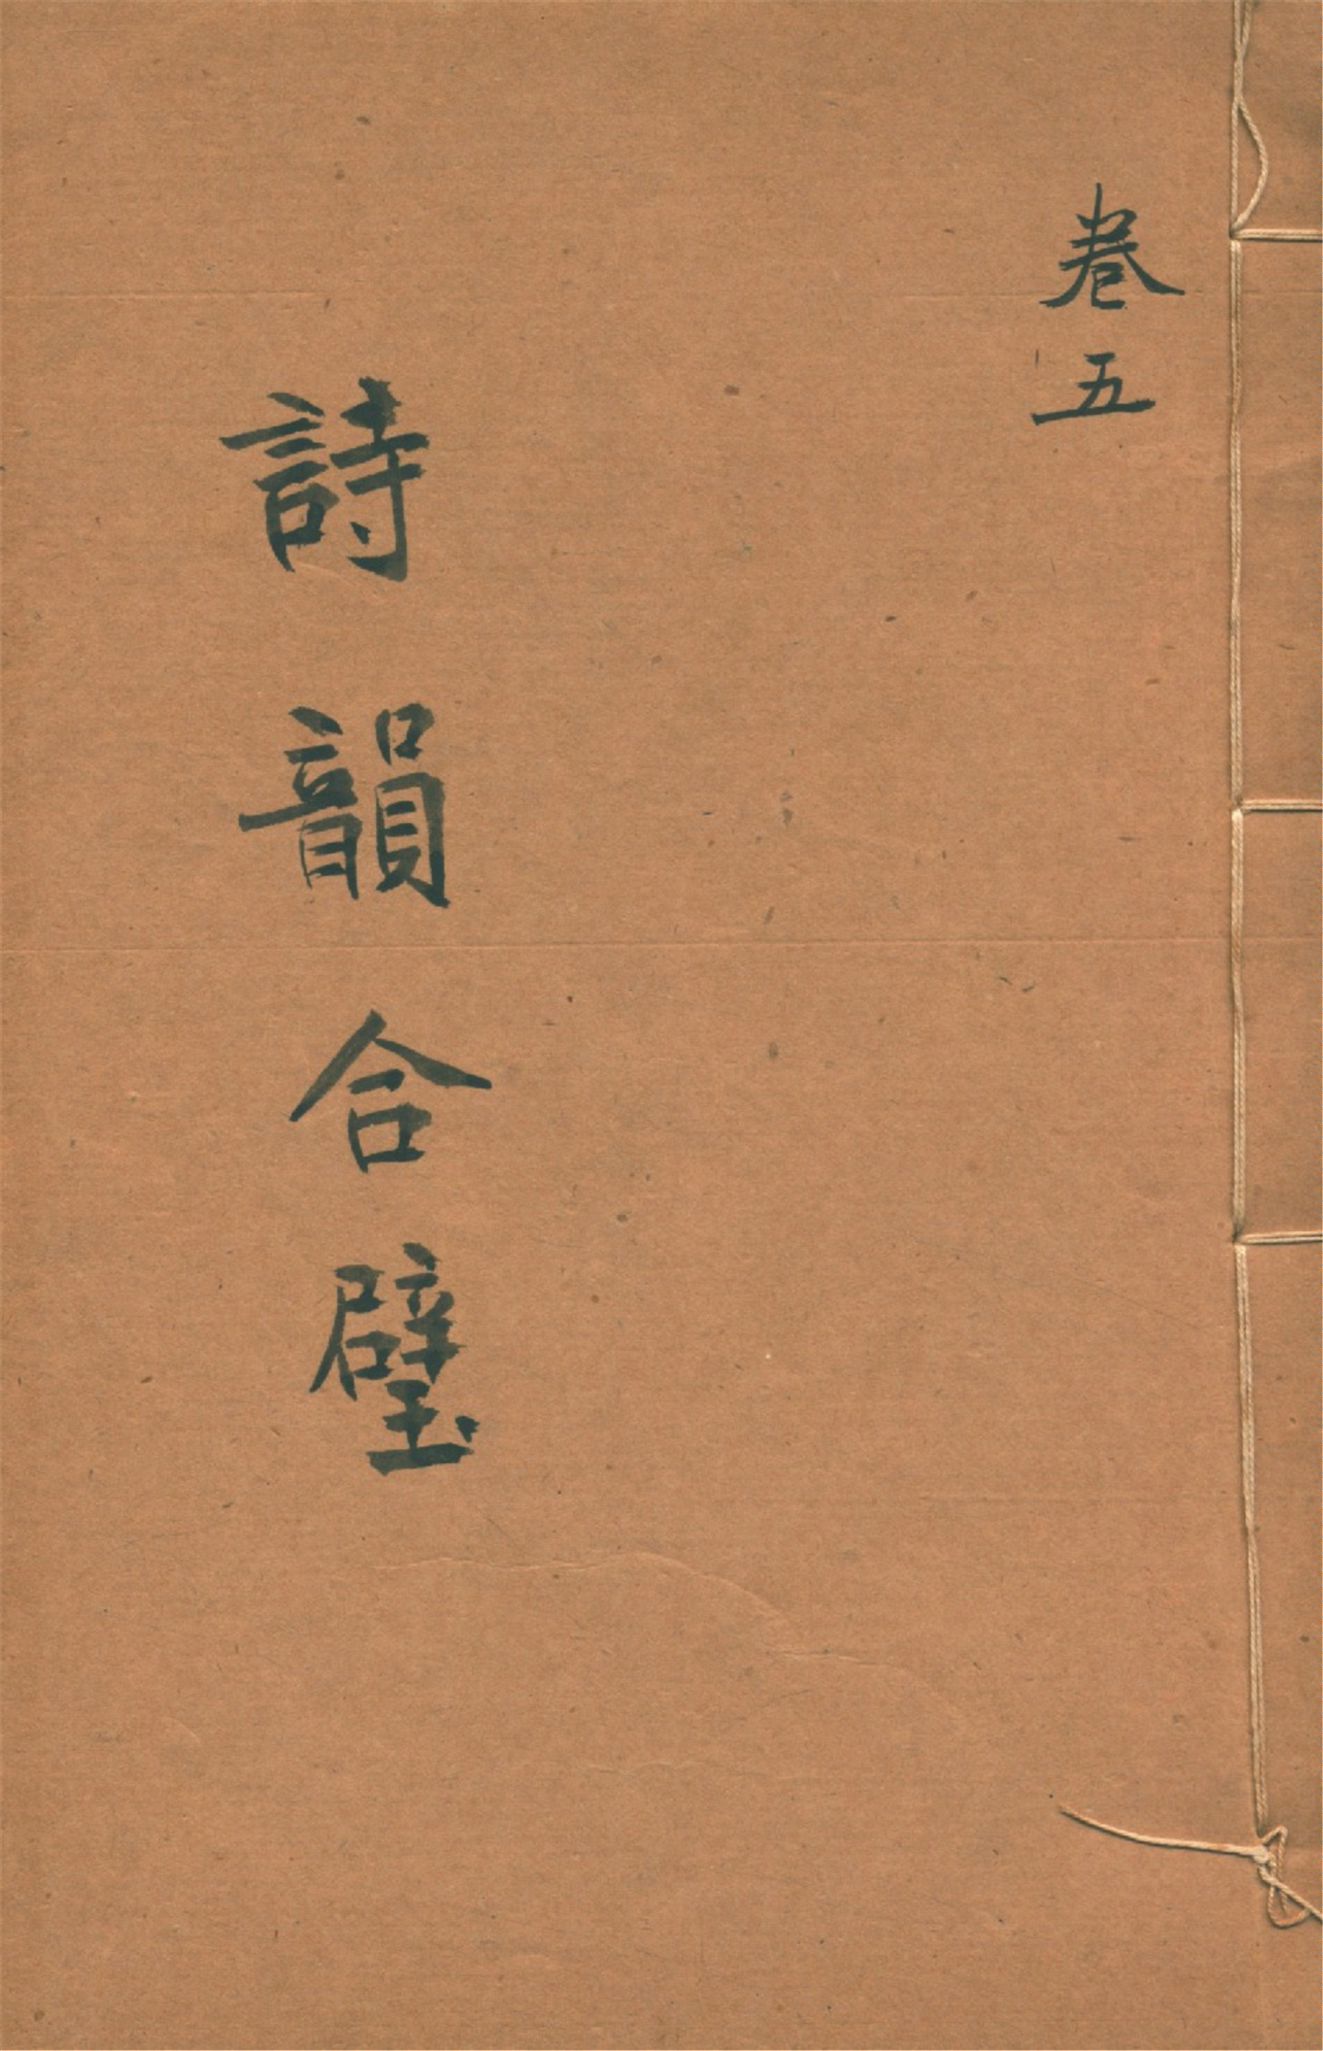 卷五
詩韻合璧